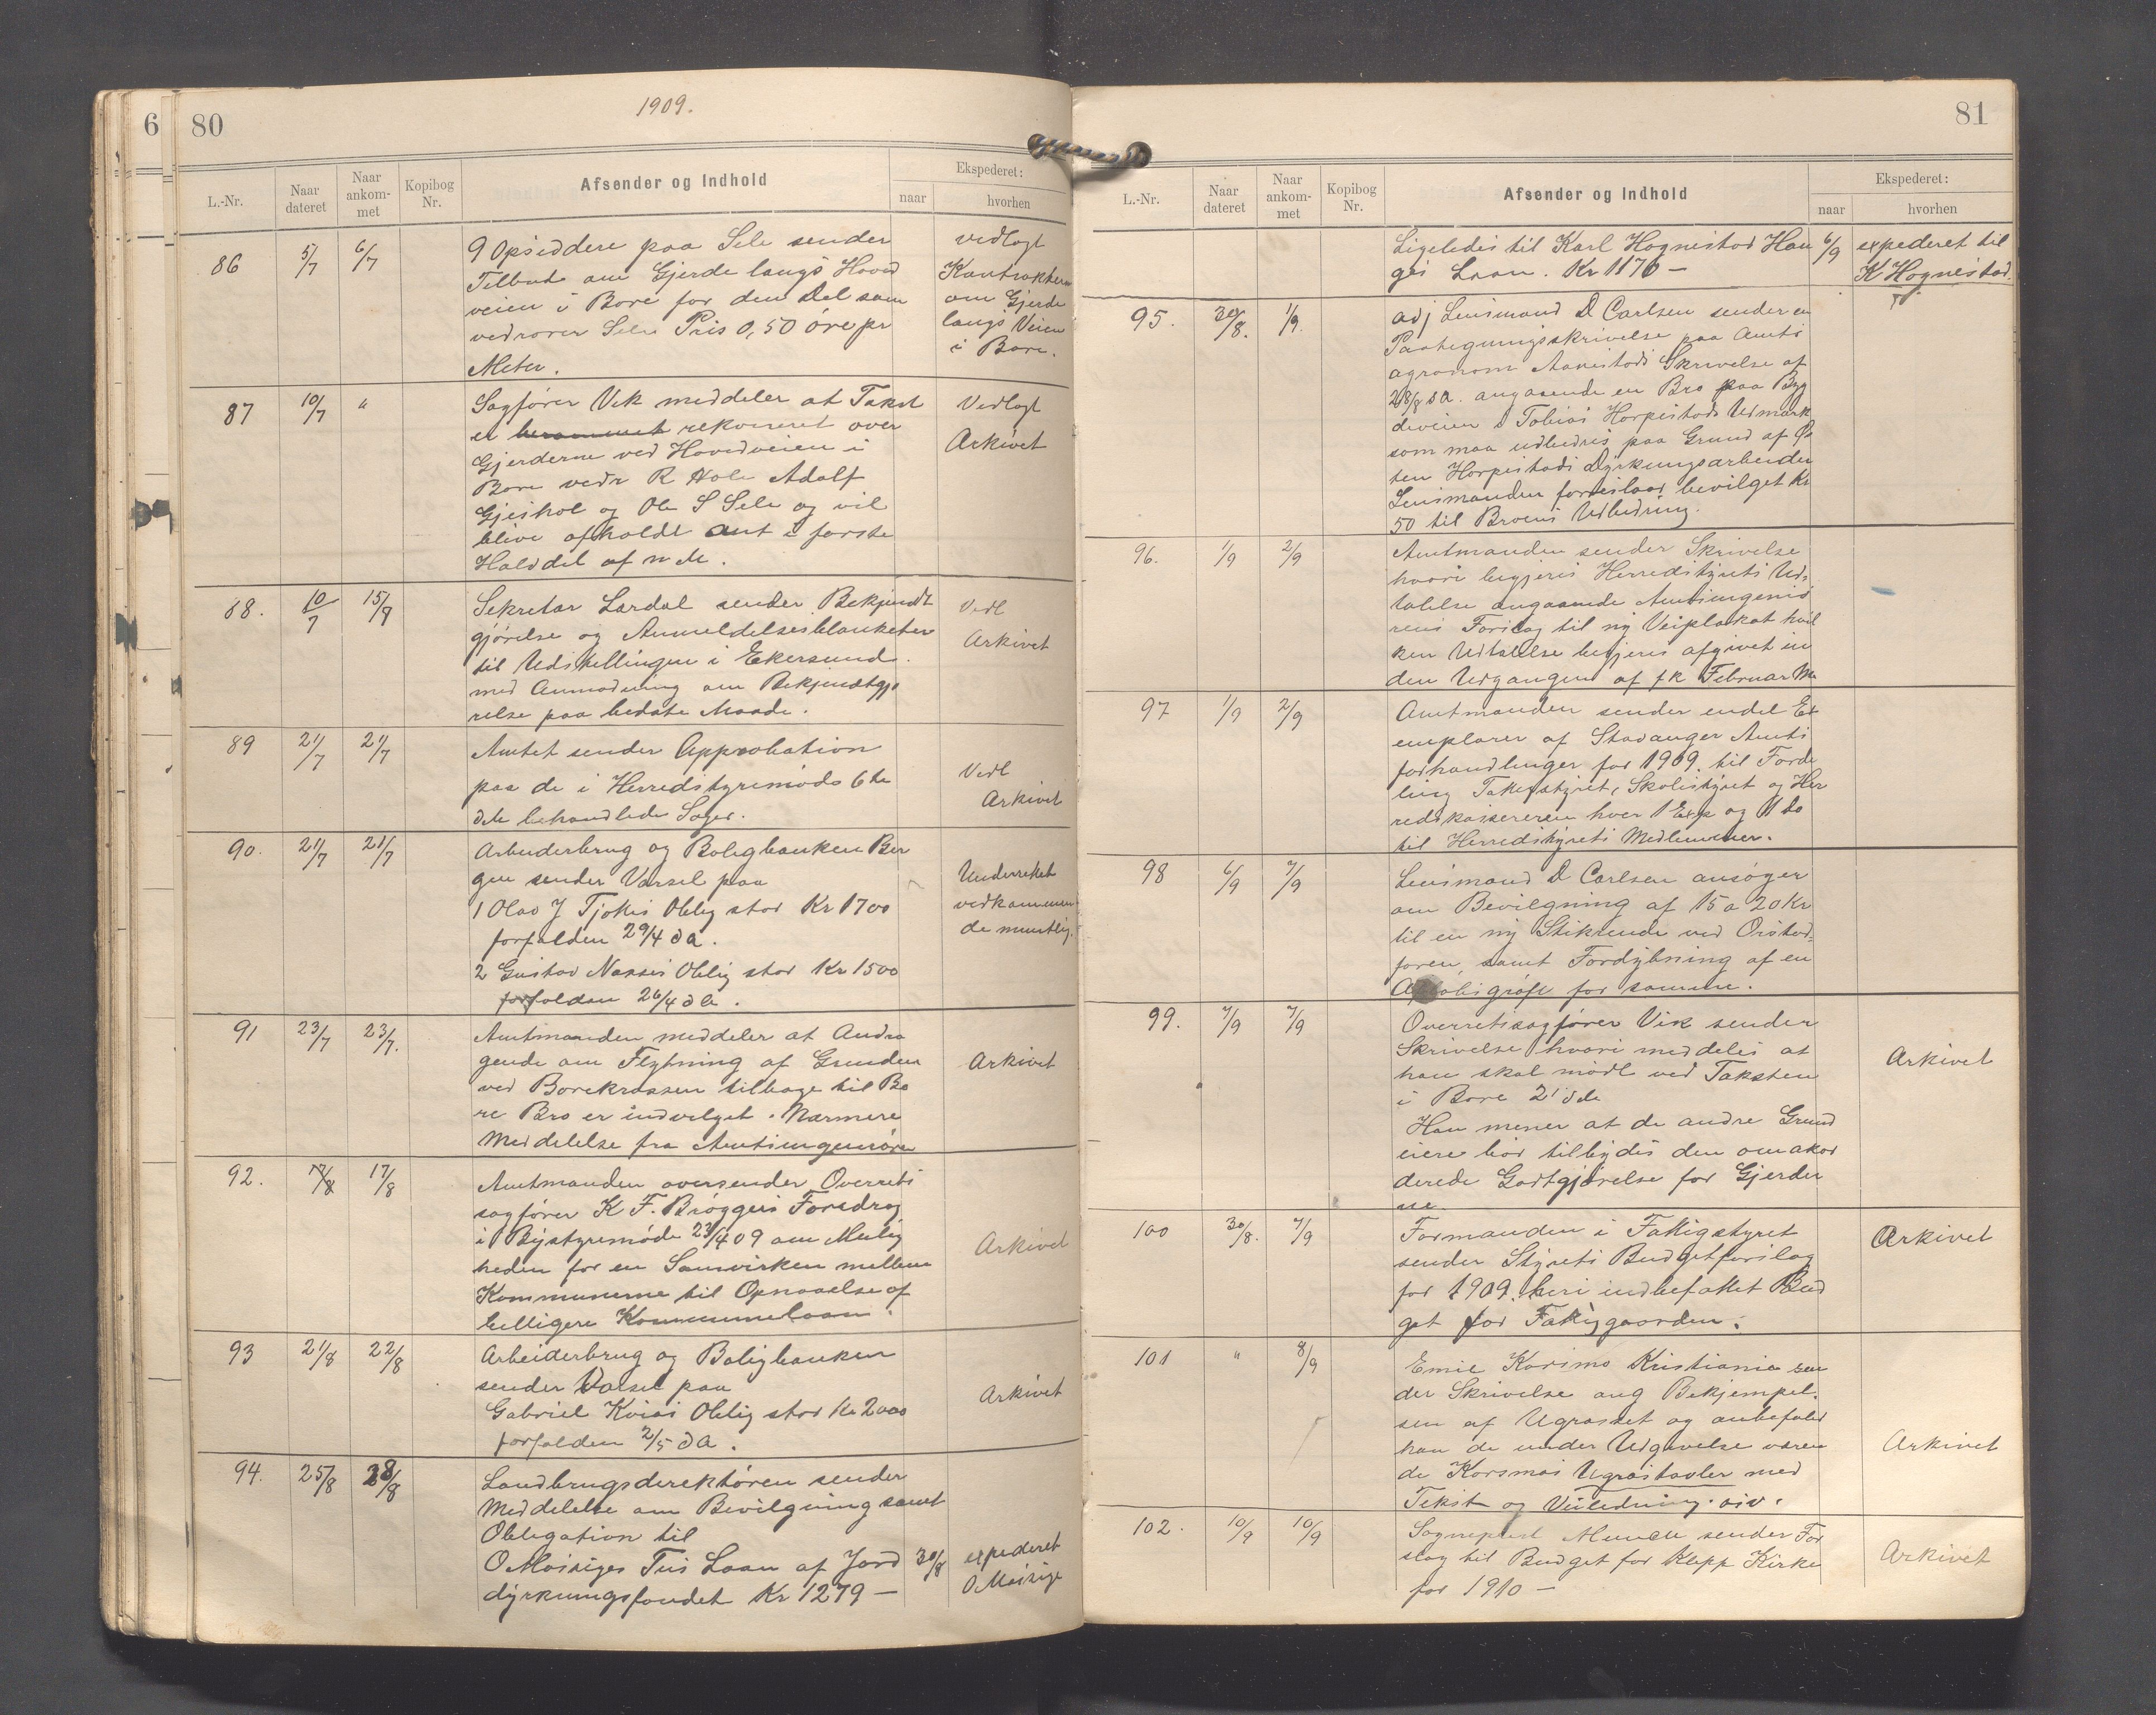 6
80
1909.
L.-Nr.
Naar dateret
Naar ankommet
Kopibog Nr.
Afsender og Indhold
Ekspederet:
naar
hvorhen
86 5/7 6/7
9 Opsiddere paa Sele sender
Tilbud om Gjerde langs Hoved
veien i Bore for den Del som
vedrører Sele Pris 0,50 øre pr
Meter.
vedlagt
Kontrakterne
om Gjerde
langs Veien
i Bore.
87 10/7 "
Sagfører Vik meddeler at Takst
er berammet rekvireret over
Gjerderne ved Hovedveien i
Bore vedr R Hole Adolf
Gjeshol og Ole S Sele og vil
blive afholdt ant i første
Halvdel af n de.
Vedlagt
Arkivet
88. 10/7 15/7
Sekretær Lardal sender Bekjendt
gjørelse og Anmeldelsesblanketer
til Udstillingen i Ekersund
med Anmodning om Bekjendtgjø
relse paa bedste Maade.
Vedl
Arkivet
89 21/7 21/7
Amtet sender Approbation
paa de i Herredstyremøde 6te
ds behandlede Sager.
Vedl
Arkivet
90. 21/7 21/7
Arbeiderbrug og Boligbanken Ber
gen sender Varsel paa
1 Olav J Tjøtis Oblig stor Kr 1700
forfalden 29/4 d A.
2 Gustav Næsses Oblig stor Kr 1500
forfalden 26/4 d A.
Underrettet
vedkommen
de muntlig.
91 23/7 23/7.
Amtmanden meddeler at Andra
gende om Flytning af Grinden
ved Borekrossen tilbage til Bo
re Bro er indvilget. Nærmere
Meddelelse fra Amtsingeniøren
Arkivet
92. 17/8 17/8
Amtmanden oversender Overrets
sagfører K F. Brøggers Foredrag
i Bystyremøde 23/4 09 om Mulig
heden for en Samvirken mellem
Kommunerne til Opnaaelse af
billigere Kommunelaan.
Arkivet
93 21/8 22/8
Arbeiderbrug og Boligbanken
sender Varsel paa
Gabriel Kvias Oblig stor Kr 2000
forfalden 2/5 d A.
Arkivet
94. 25/8 28/8
Landbrugsdirektøren sender
Meddelelse om Bevilgning samt
Obligation til
O Moisiges Tiis Laan af Jord
dyrkningsfondet Kr 1279 —
30/8
expederet
O Moisige
81
L.-Nr.
Naar dateret
Naar ankommet
Kopibog Nr.
Afsender og Indhold
Ekspederet:
naar
hvorhen
Ligeledes til Karl Hognestad Hau
ges Laan. Kr 1170 —
6/9
expederet til
K Hognestad.
95. 30/8. 1/9.
adj Lensmand D Carlsen sender en
Paategningsskrivelse paa Amts
agronom Aanestads Skrivelse af
28/8 d A. angaaende en Bro paa Byg
deveien i Tobias Horpestads Udmark
som maa udbedres paa Grund af Ø
sten Horpestads Dyrkningsarbeider
Lensmanden foreslaar bevilget Kr
50 til Broens Udbedring.
96. 1/9 2/9
Amtmanden sender Skrivelse
hvori begjæres Herredstyrets Ud
talelse angaaende Amtsingeniø
rens Forslag til ny Veiplakat hvil
ken Udtalelse begjæres afgivet in
den Udgangen af fk Februar Md
97 1/9 2/9
Amtmanden sender endel Ex
emplarer af Stavanger Amts
forhandlinger for 1909. til Forde
ling Fattigstyret, Skolestyret og Her
redskassereren hver 1 Exp og 1 do
til Herredstyrets Medlemmer.
98 6/9 7/9
Lensmand D Carlsen ansøger
om Bevilgning af 15 a 20 Kr
til en ny Stikrende ved Orstad=
foren, samt Fordybning af en
Afløbsgrøft for samme.
99. 7/9 7/9
Overretssagfører Vik sender
Skrivelse hvori meddeles at
han skal møde ved Taksten
i Bore 21 ds
Han mener at de andre Grund
eiere bør tilbydes den omakor
derede Godtgjørelse for Gjerder
ne
Arkivet
100 30/8. 7/9
Formanden i Fattigstyret
sender Styrets Budgetforslag
for 1909. heri indbefattet Bud
get for Fattiggaarden.
Arkivet
101 " 8/9
Emil Korsmo Kristiania sen
der Skrivelse ang Bekjempel
sen af Ugræsset og anbefaler
han de under Udgivelse væren
de Korsmos Ugræstavler med
Tekst og Veiledning. oiv.
Arkivet
102. 10/9 10/9
Sogneprest Munch sender For
slag til Budget for Klepp Kirke
for 1910 —
Arkivet